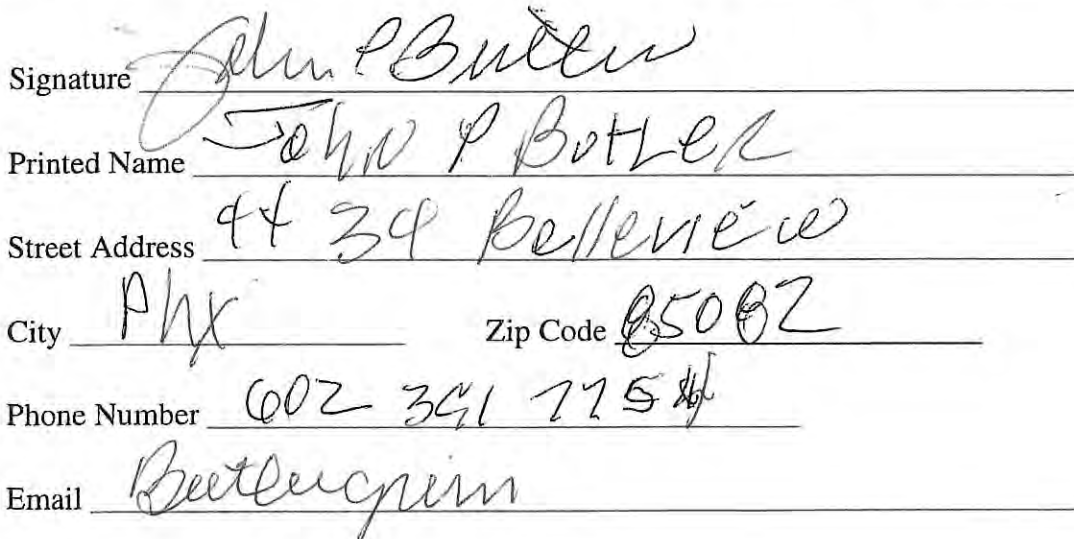 Signature John P Butler
Printed Name John P Butler
Street Address 4434 Belleview
City Phx Zip Code 85082
Phone Number 602 391 775
Email